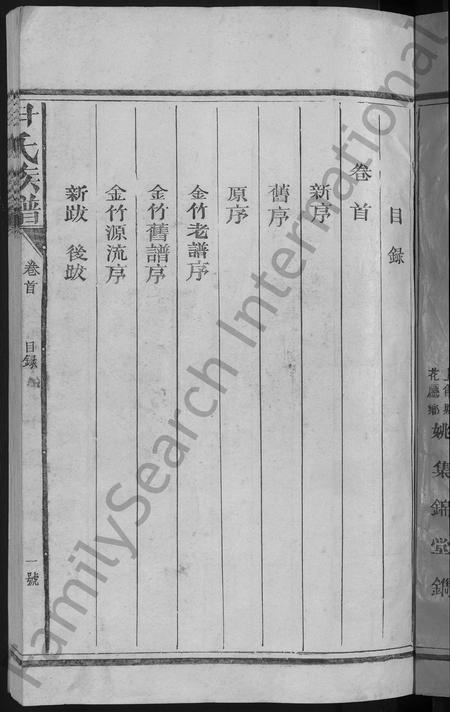 目錄
卷首
新序
舊序
原序
金竹老譜序
金竹舊譜序
金竹源流序
新跋 後跋
氏族譜
卷首
目錄
一號
花廳鄉
姚集錦堂鐫
FamilySearch International